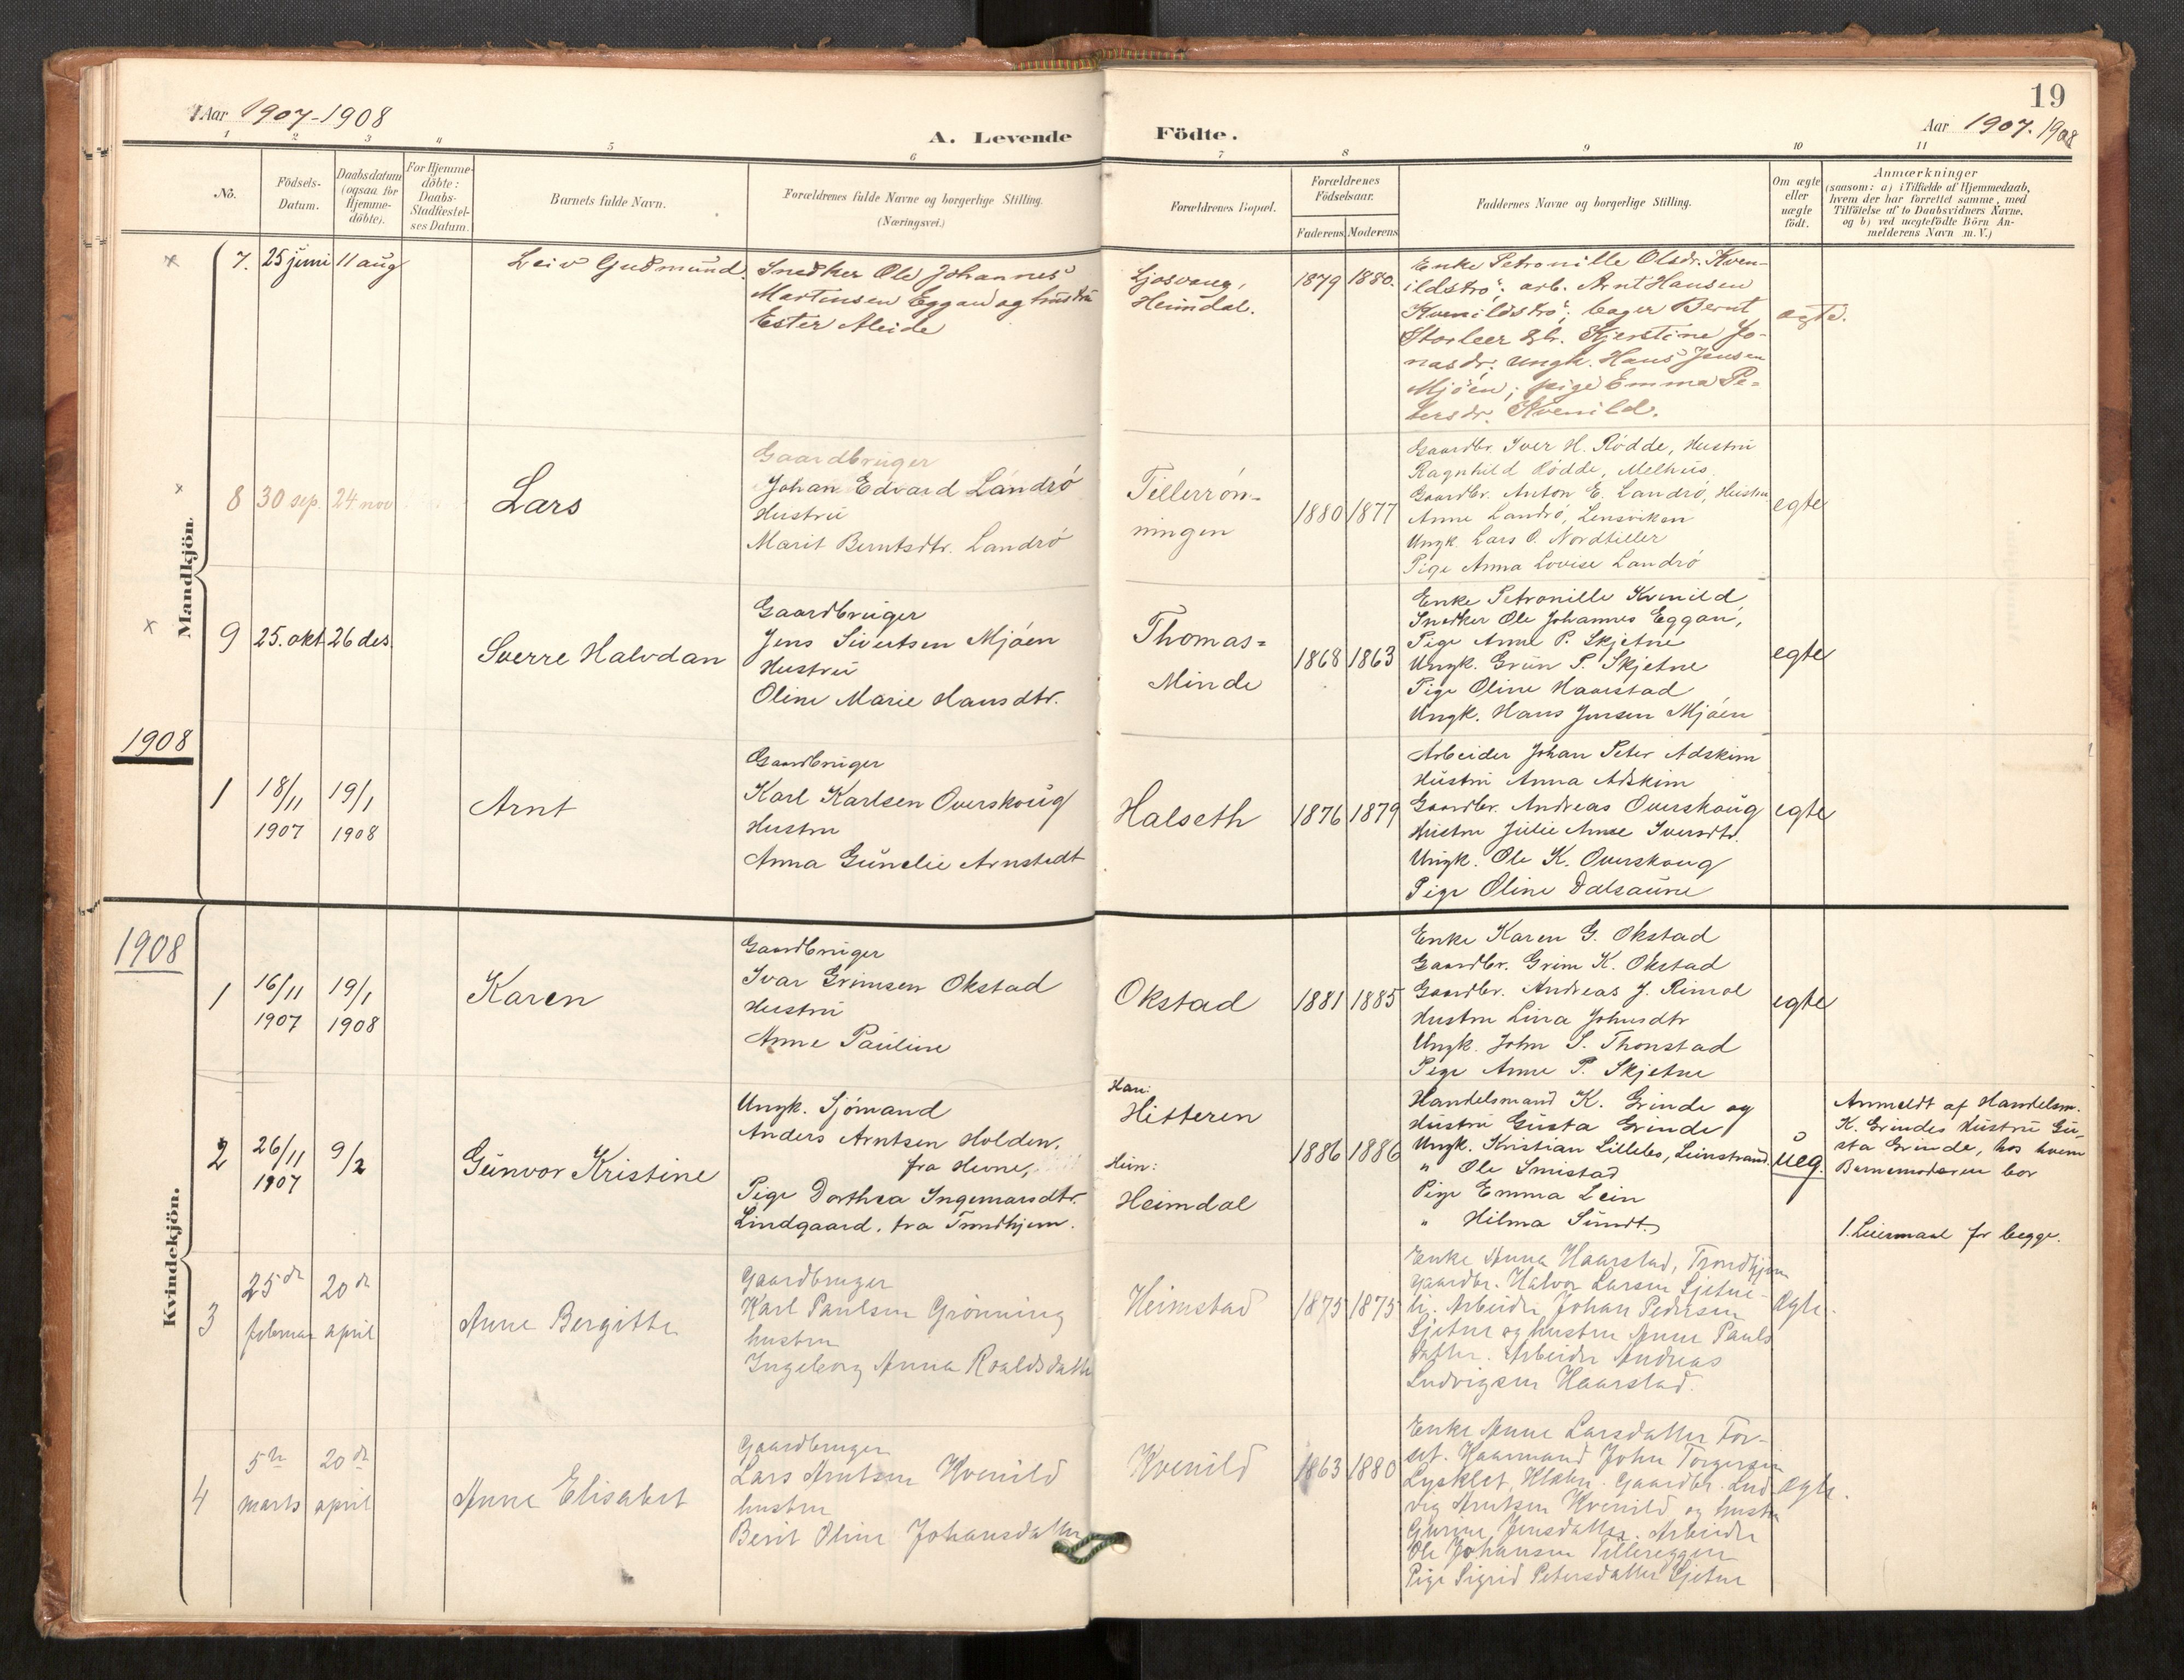 Aar 1907-1908
A. Levende Födte.
19
Aar 1907. 1908
1 2 3 4 5 6 7 8 9 10 11
No.
Födsels-
Datum.
Daabsdatum
(ogsaa for
Hjemme-
döbte).
For Hjemme-
döbte:
Daabs-
Stadfæstel-
ses Datum.
Barnets fulde Navn.
Forældrenes fulde Navne og borgerlige Stilling.
(Næringsvei.)
Forældrenes Bopæl.
Forældrenes
Födselsaar.
Faderens. Moderens.
Faddernes Navne og borgerlige Stilling.
Om ægte
eller
uægte
födt.
Anmærkninger
(saasom: a) i Tilfælde af Hjemmedaab,
hvem der har forrettet samme, med
Tilföielse af to Daabsvidners Navne,
og b) ved uægtefödte Börn An-
melderens Navn m. V.)
Mandkjön.
x
7. 25 juni 11 aug
Leiv Gudmund.
Snedker Ole Johannes
Martinsen Eggan og hustru
Ester Aleide
Ljosvang,
Heimdal.
1879 1880.
Enke Petronille Olsdr. Kven-
ildstrø; arb. Arnt Hansen
Kvenildstrø; bager Bernt
Storleer & h. Kjerstine Jo-
nasdr; ungk. Hans Jensen
Mjöen; pige Emma Pe-
tersdr. Kvenild.
ægte.
x
8 30 sep. 24 nov
Lars
Gaardbruger
Johan Edvard Landrö
Hustru
Marit Berntsdtr. Landrö
Tillerrön-
ningen
1880 1877
Gaardbr. Iver H. Rödde, Hustru
Ragnhild Rödde, Melhus.
Gaardbr. Anton E. Landrö, Hustru
Anne Landrö, Lensviken
Ungk. Lars O. Nordtiller
Pige Anna Lovise Landrö
egte
x
9 25. okt 26 des.
Sverre Halvdan
Gaardbruger
Jens Sivertsen Mjöen
Hustru
Oline Marie Hansdtr.
Thomas-
Minde
1868 1863
Enke Petronille Kvenild
Snedker Ole Johannes Eggan,
Pige Anne P. Skjetne
Ungk. Grim P. Skjetne
Pige Oline Haarstad
Ungk. Hans Jensen Mjöen
egte
1908
1 18/11 1907 19/1 1908
Arnt
Gaardbruger
Karl Karlsen Overskoug
Hustru
Anna Gunelie Arnstadt
Halseth
1876 1879
Arbeider Johan Peter Adskim
Hustru Anna Adskim
Gaardbr. Andreas Overskaug
Hustru Julie Anne Iversdtr.
Ungk. Ole K. Overskoug
Pige Oline Dalsaune
egte
Kvindekjön.
1908
1 16/11 1907 19/1 1908
Karen
Gaardbruger
Ivar Grimsen Okstad
Hustru
Anne Pauline
Okstad
1881 1885
Enke Karen G. Okstad
Gaardbr. Grim K. Okstad
Gaardbr. Andreas J. Rimol
Hustru Lina Johnsdtr
Ungk. John S. Thonstad
Pige Anne P. Skjetne
egte
2 26/11 1907 9/2
Gunvor Kristine
Ungk. Sjömand
Anders Arntsen Holden,
fra Hevne,
Pige Dorthea Ingemarsdtr.
Lindgaard, fra Trondhjem.
Han:
Hitteren
Hun:
Heimdal
1886 1886
Handelsmand K. Grinde og
Hustru Gusta Grinde
Ungk. Kristian Lillebo, Leinstrand
" Ole Smistad
Pige Emma Lein
" Hilma Sundt.
ueg.
Anmeldt af Handelsm.
K. Grindes Hustru Gu-
sta Grinde, hos hvem
Barnemoderen bor
1. Leiermaal for begge.
3 25de februar 20de april
Anne Bergitte
Gaardbruger
Karl Paulsen Grönning
hustru
Ingeborg Anna Roaldsdatter
Heimstad
1875 1875
Enke Anna Haarstad, Trondhjem
gaardbr. Halvor Larsen Sjetne-
li. Arbeider Johan Pedersen
Sjetne og hustru Anne Pauls
datter. Arbeider Andreas
Ludvigsen Haarstad.
ægte.
4 5te marts 20de april
Anne Elisabet
Gaardbruger
Lars Arntsen Kvenild
hustru
Berit Oline Johansdatter
Kvenild
1863 1880
Enke Anne Larsdatter For-
set. Kaarmand John Torgersen
Lysklet, Klæbu. Gaardbr. Lud
vig Arntsen Kvenild og hustru
Gurine Jensdatter. Arbeider
Ole Johansen Tillereggen
Pige Sigrid Petersdatter Sjetne
ægte.